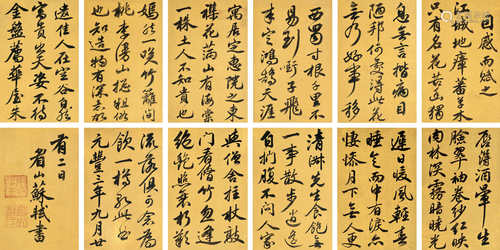 因感而賦之
江城地瘴蕃草木
只有名花苦幽獨
息無言揩病目
陋邦何處得此花
無乃好事移
西蜀寸根千里不
易到銜子飛
來定鴻鵠天涯
寓居定惠院之東
雜花滿山有海棠
一株土人不知貴也
嫣然一笑竹籬間
桃李漫山總粗俗
也知造物有深意
遣佳人在空谷自然
富貴出天姿不待
金盤薦華屋朱
唇得酒暈生
臉翠袖卷紗紅映
肉林深霧暗曉光
遲日暖風輕春
睡足雨中有淚亦
悽愴月下無人更
清淑先生食飽無
一事散步逍遙
自捫腹不問人家
與僧舍拄杖敲
門看修竹忽逢
絕艷照衰朽
流落俱可念為
飲一樽歌此曲
元豐三年九月廿
有二日
眉山蘇軾書